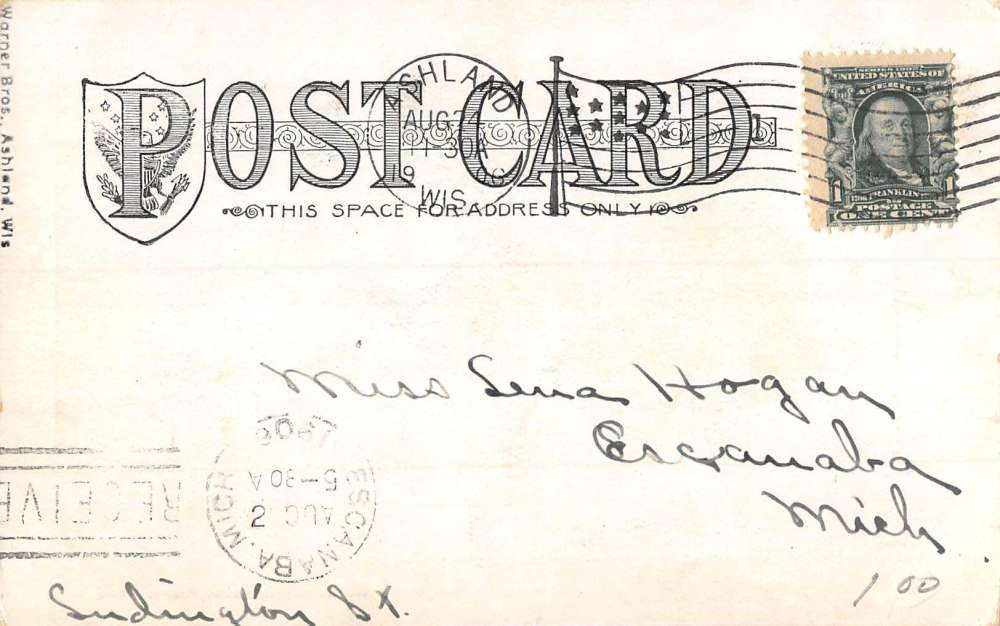 Warner Bros, Ashland, Wis
POST CARD
THIS SPACE FOR ADDRESS ONLY
ASHLAND
AUG 24
11-30A
WIS.
SERIES 1902
UNITED STATES OF
AMERICA
FRANKLIN
1 1
POSTAGE
ONE CENT
Miss Lena Hogan
Escanaba
Mich
RECEIVE
ESCANABA, MICH
AUG 2
5-30A
1906
Ludington St.
1 00